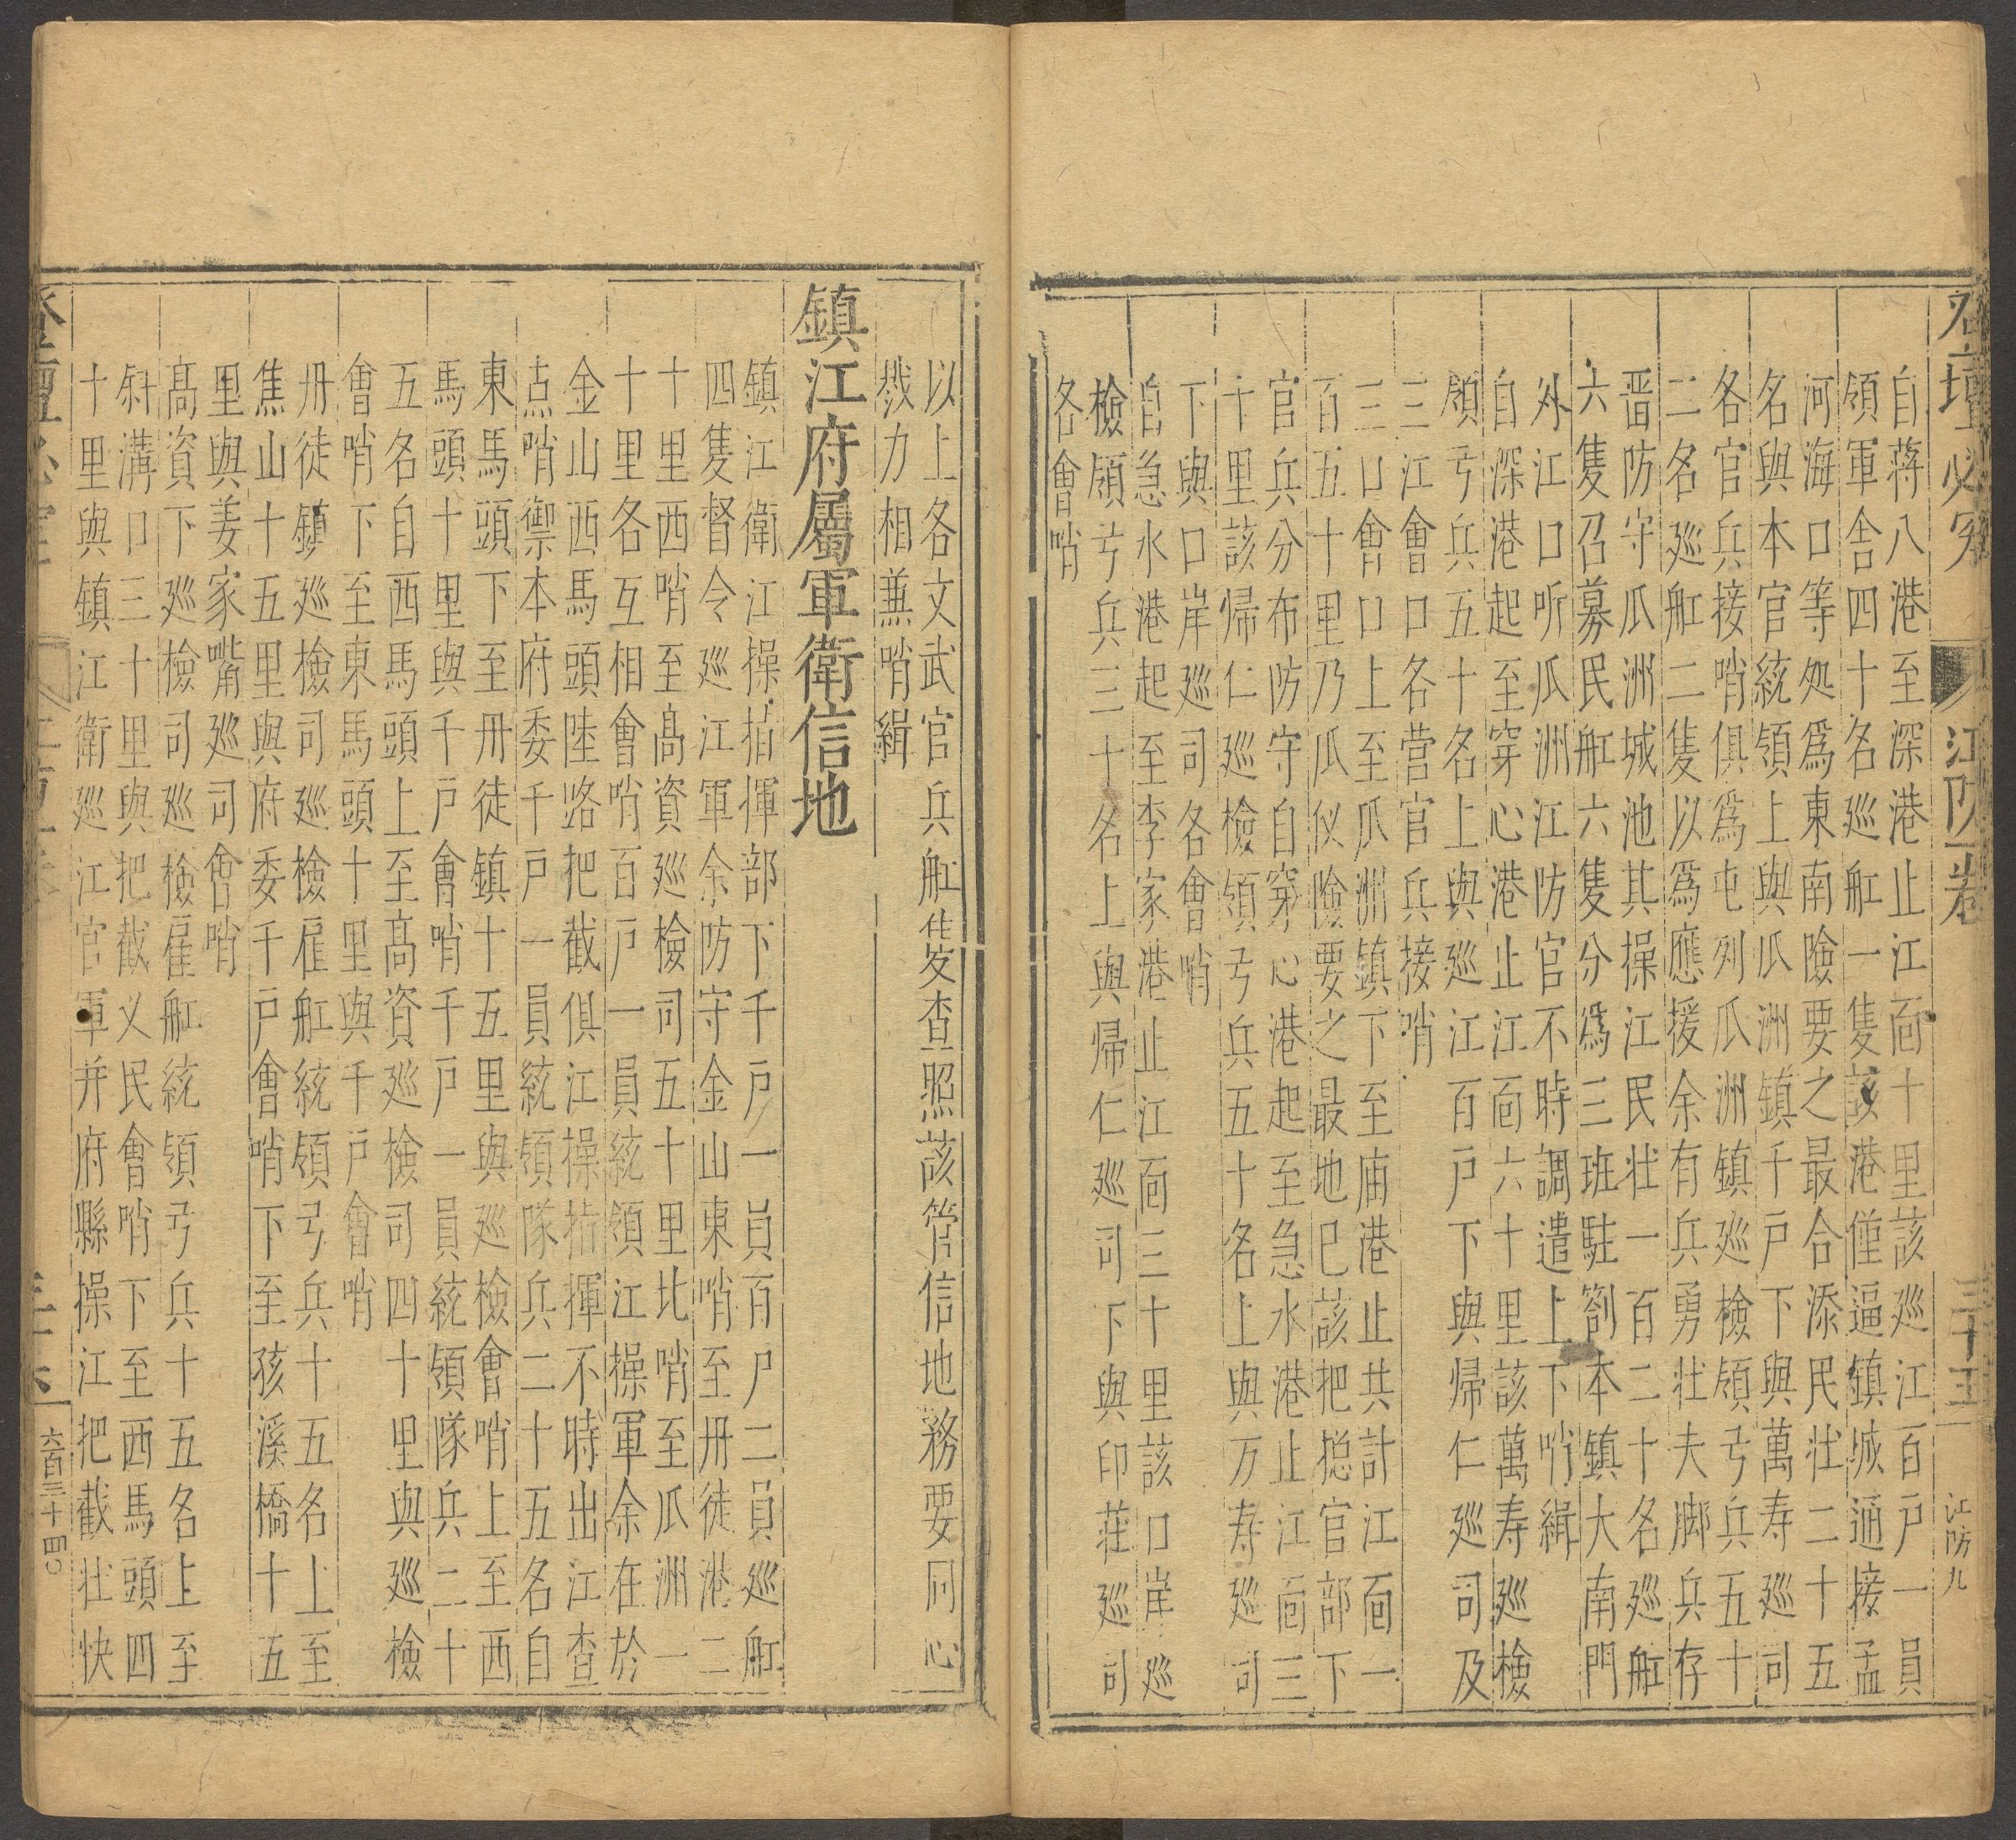 登壇必究
江防一卷
三十五
江防九
自蒋八港至深港止江靣十里該巡江百戸一員
領軍舎四十名巡舡一隻該港僅逼鎮城通接孟
河海口等处爲東南險要之最合添民壮二十五
名與本官統領上與瓜洲鎮千戸下與萬寿巡司
各官兵接哨俱爲屯列瓜洲鎮巡檢領弓兵五十
二名巡舡二隻以爲應援余有兵勇壮夫脚兵存
晋防守瓜洲城池其操江民壮一百二十名巡舡
六隻召募民舡六隻分爲三班駐劄本鎮大南門
外江口听瓜洲江防官不時調遣上下哨緝
自深港起至穿心港止江靣六十里該萬寿巡檢
領弓兵五十名上與巡江百戸下與帰仁巡司及
三江會口各營官兵接哨
三口會口上至瓜洲鎮下至庙港止共計江靣一
百五十里乃瓜仪險要之最地已該把捴官部下
官兵分布防守自穿心港起至急水港止江靣三
十里該帰仁巡檢領弓兵五十名上與万寿巡司
下與口岸巡司各會哨
自急水港起至李家港止江靣三十里該口岸巡
檢領弓兵三十名上與帰仁巡司下與印莊巡司
各會哨
以上各文武官兵舡隻查照該管信地務要同心
戮力相兼哨緝
鎮江府屬軍衛信地
鎮江衛江操指揮部下千戸一員百戸二員巡舡
四隻督令巡江軍余防守金山東哨至丹徒港二
十里西哨至髙資巡檢司五十里比哨至瓜洲一
十里各互相會哨百戸一員統領江操軍余在於
金山西馬頭陸路把截俱江操指揮不時出江查
点哨禦本府委千戸一員統領隊兵二十五名自
東馬頭下至丹徒鎮十五里與巡檢會哨上至西
馬頭十里與千戸會哨千戸一員統領隊兵二十
五名自西馬頭上至髙資巡檢司四十里與巡檢
會哨下至東馬頭十里與千戸會哨
丹徒鎮巡檢司巡檢雇舡統領弓兵十五名上至
焦山十五里與府委千戸會哨下至孩溪橋十五
里與姜家嘴巡司會哨
髙資下巡檢司巡檢雇舡統領弓兵十五名上至
斜溝口三十里與把截义民會哨下至西馬頭四
十里與鎮江衛巡江官軍并府縣操江把截壮快
六百三十四〇